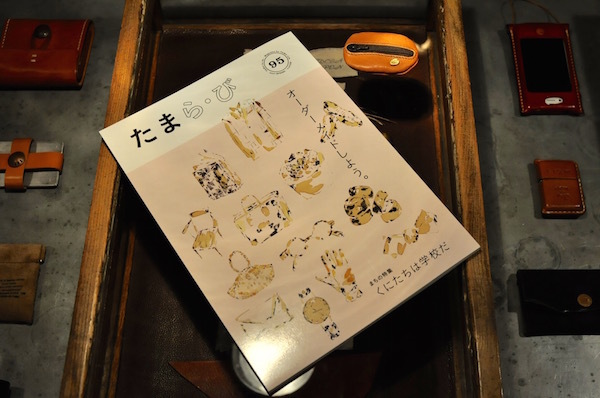 たまら・び
95
オーダーメイドしよう。
まちの特集
くにたちは学校だ